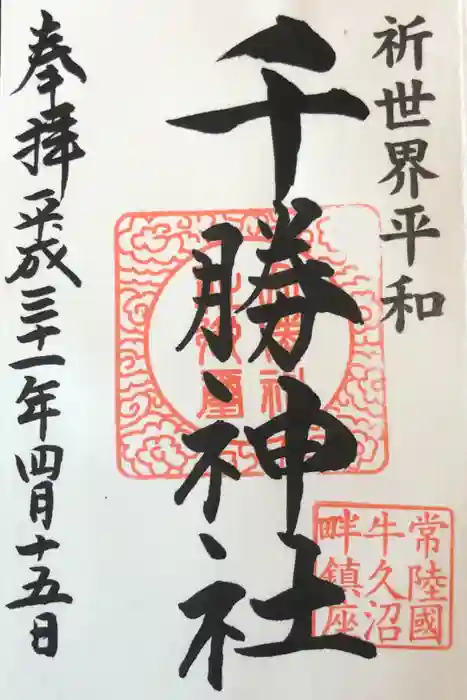 祈世界平和
千勝神社
常陸國
牛久沼
畔鎮座
奉拝 平成三十一年四月十五日